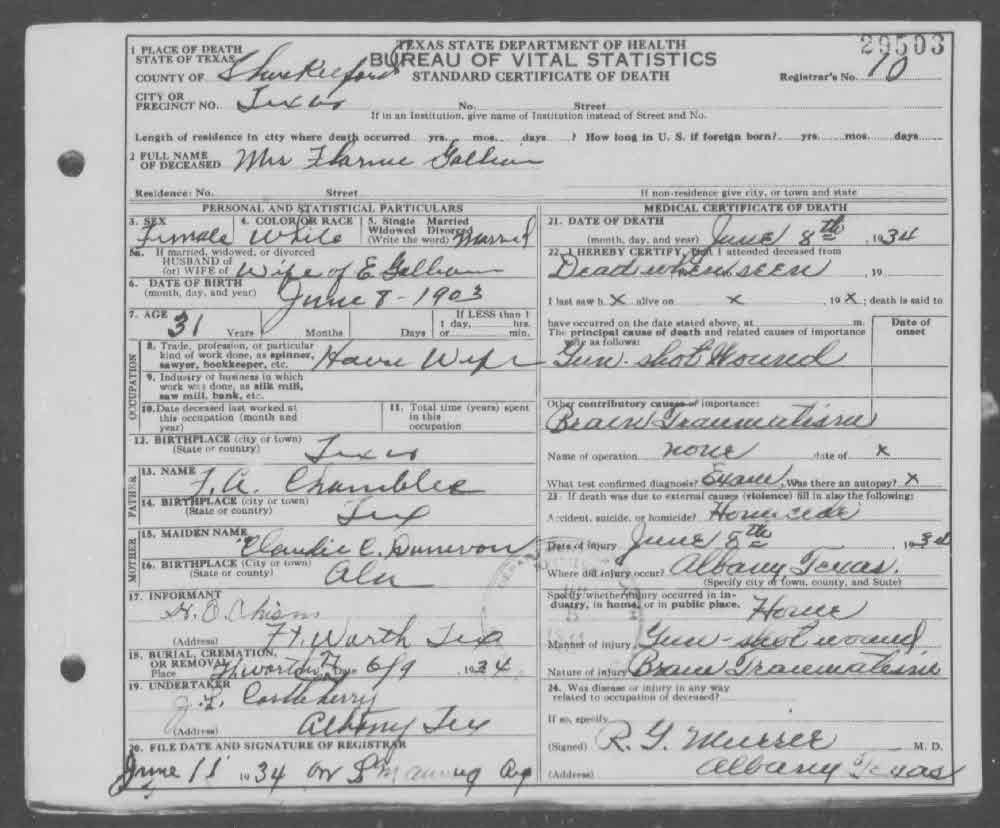 TEXAS STATE DEPARTMENT OF HEALTH
BUREAU OF VITAL STATISTICS
STANDARD CERTIFICATE OF DEATH
29503
Registrar's No. 10
1 PLACE OF DEATH
STATE OF TEXAS
COUNTY OF
CITY OR
PRECINCT NO. Texas No. Street
If in an Institution, give name of Institution instead of Street and No.
Length of residence in city where death occurred yrs. mos. days ? How long in U. S. if foreign born? yrs. mos. days
2 FULL NAME
OF DECEASED Mrs
Residence: No. Street
If non-residence give city, or town and state
PERSONAL AND STATISTICAL PARTICULARS
3. SEX 4. COLOR OR RACE 5. Single Married
Widowed Divorced
Female White (Write the word) Married
5a. If married, widowed, or divorced
HUSBAND of
(or) WIFE of Wife of E
6. DATE OF BIRTH
(month, day, and year) June 8 - 1903
7. AGE If LESS than 1
1 day, hrs.
31 Years Months Days or min.
OCCUPATION
8. Trade, profession, or particular
kind of work done, as spinner,
sawyer, bookkeeper, etc. House Wife
9. Industry or business in which
work was done, as silk mill,
saw mill, bank, etc.
10. Date deceased last worked at
this occupation (month and
year)
11. Total time (years) spent
in this
occupation
12. BIRTHPLACE (city or town)
(State or country) Texas
FATHER
13. NAME Chamblee
14. BIRTHPLACE (city or town)
(State or country) Tex
MOTHER
15. MAIDEN NAME Claudie C.
16. BIRTHPLACE (City or town)
(State or country) Ala
17. INFORMANT
Chism
(Address) Ft. Worth Tex
18. BURIAL, CREMATION,
OR REMOVAL
Place Date 6/9 1934
19. UNDERTAKER
(Address) Albany Tex
20. FILE DATE AND SIGNATURE OF REGISTRAR
June 11 1934
MEDICAL CERTIFICATE OF DEATH
21. DATE OF DEATH
(month, day, and year) June 8th, 1934
22. I HEREBY CERTIFY, That I attended deceased from
Dead when seen, 19
I last saw h X alive on x, 19 X; death is said to
have occurred on the date stated above, at m.
The principal cause of death and related causes of importance
were as follows:
Date of
onset
Gun-shot Wound
Other contributory causes of importance:
Brain Traumatism
Name of operation none date of x
What test confirmed diagnosis? Exam. Was there an autopsy? X
23. If death was due to external causes (violence) fill in also the following:
Accident, suicide, or homicide? Homicide
Date of injury June 8th 1934
Where did injury occur? Albany, Texas.
(Specify city or town, county, and State)
Specify whether injury occurred in in-
dustry, in home, or in public place. Home
Manner of injury Gun-shot wound
Nature of injury Brain Traumatism
24. Was disease or injury in any way
related to occupation of deceased?
If so, specify
(Signed) R. G. M. D.
(Address) Albany Texas